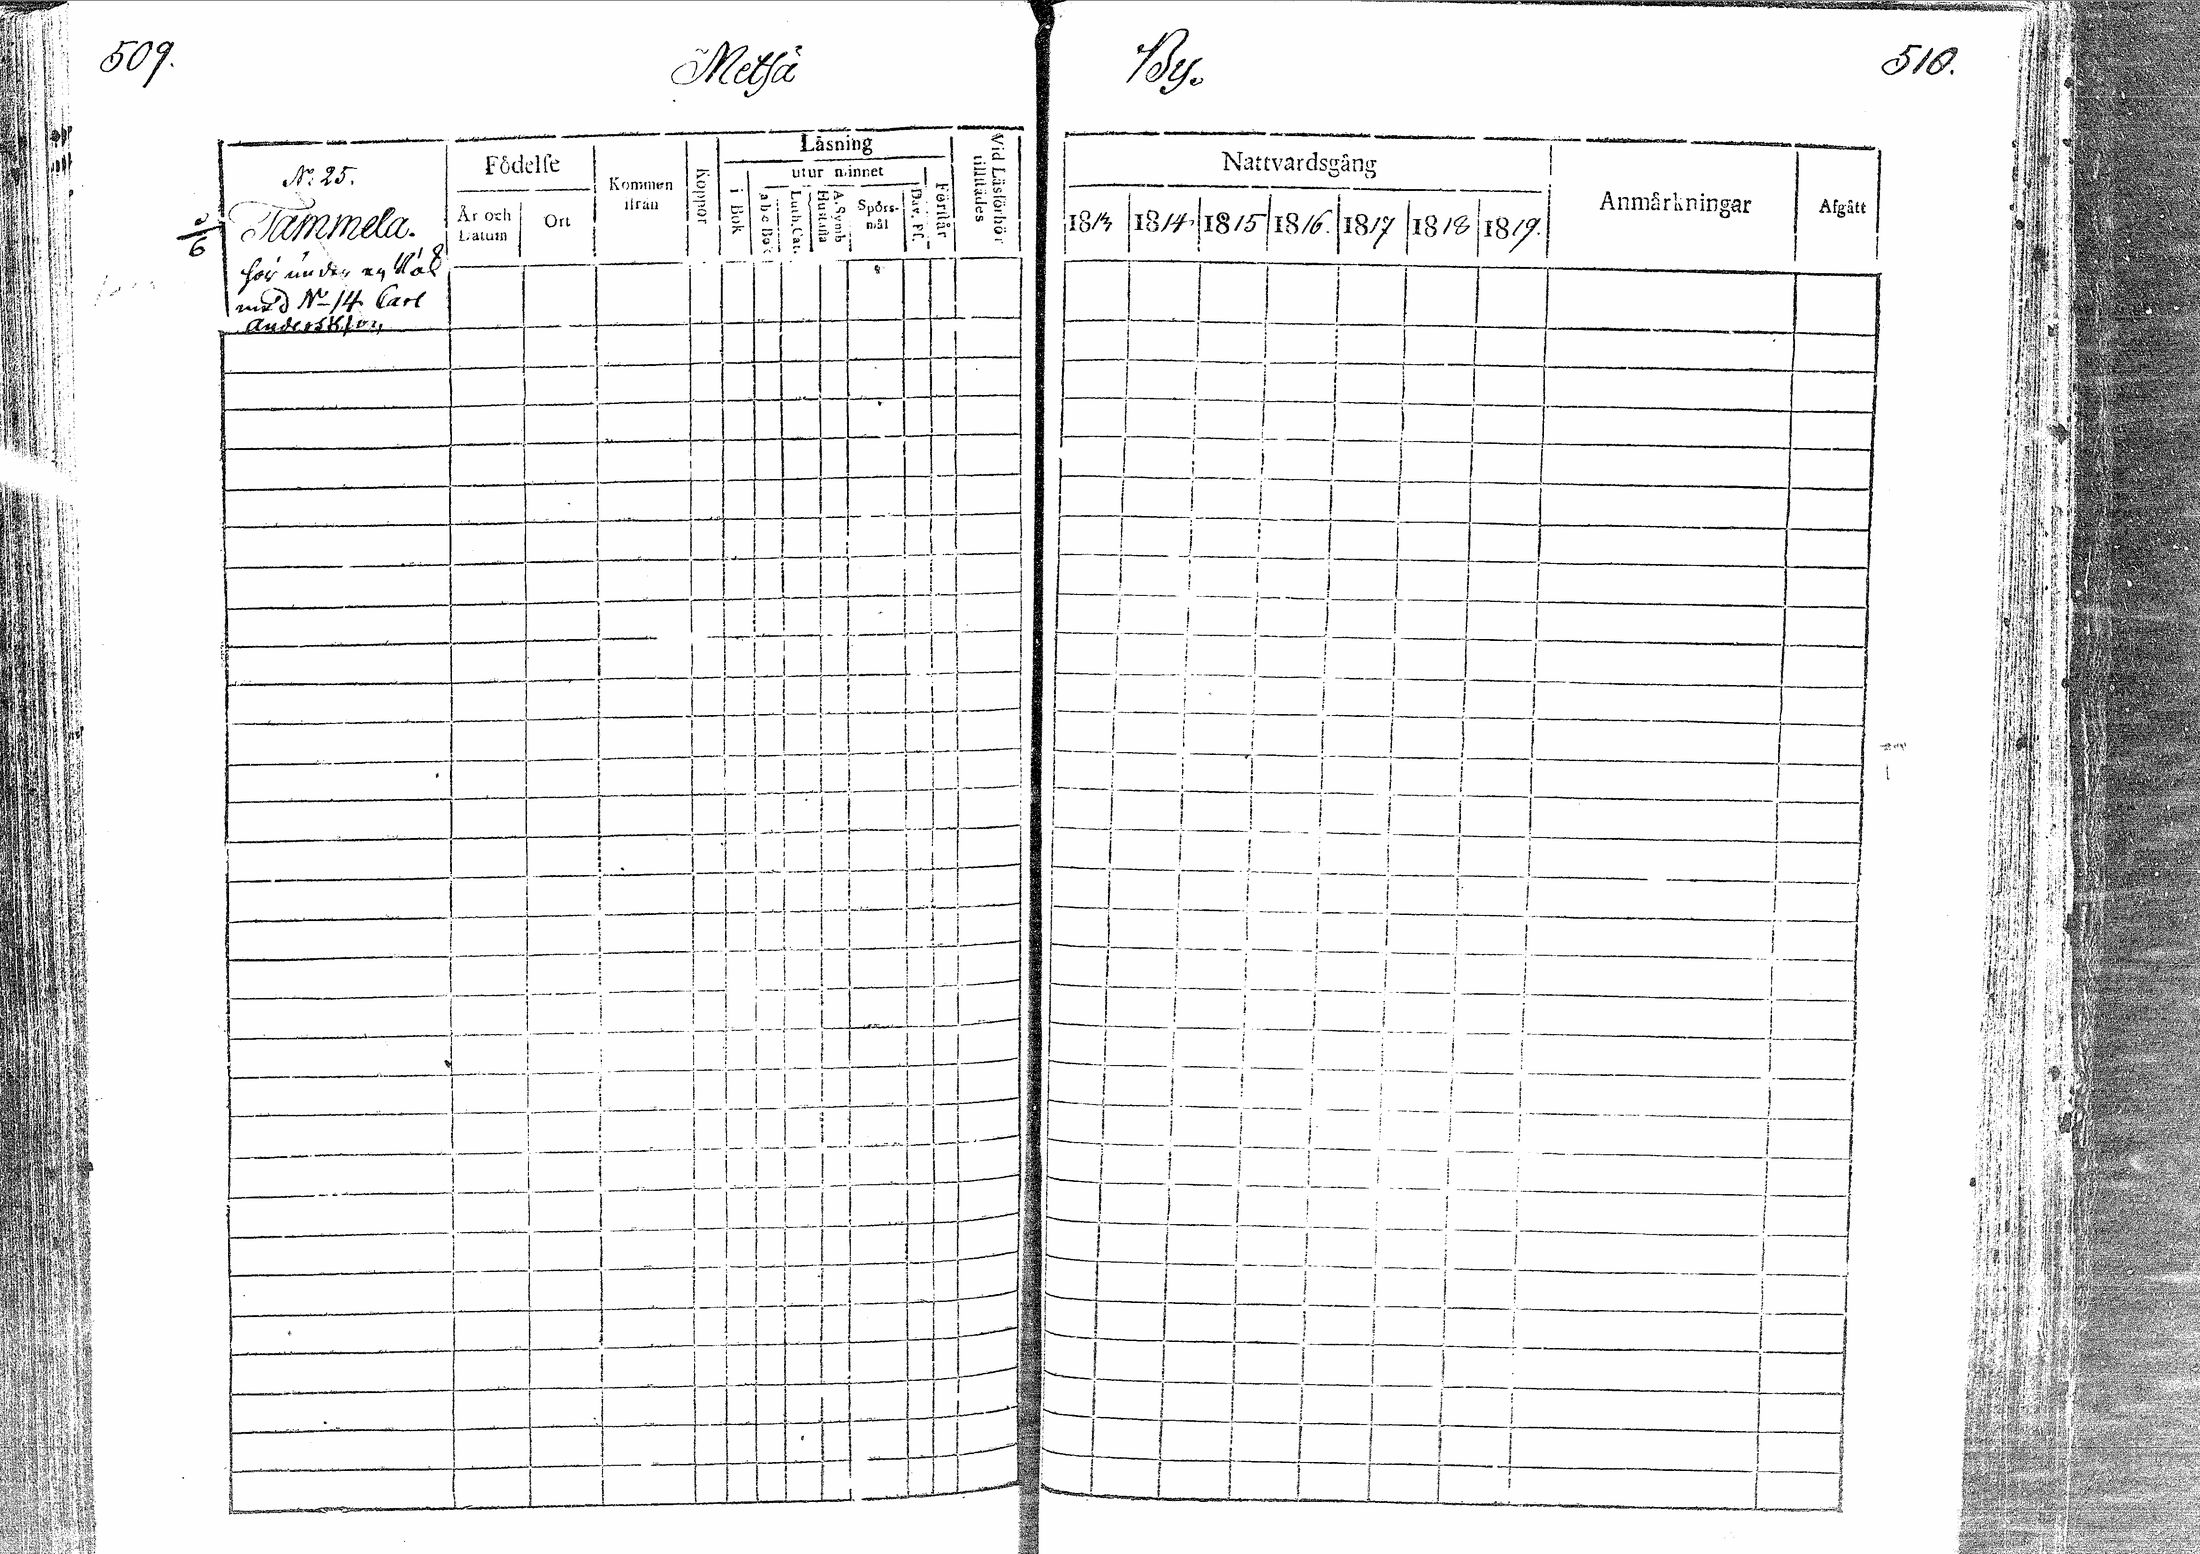 509.
Metsä
By.
510.
Nº 25.
Tammela.
hör under en Rök
med Nº 14 Carl
Andersson
6
Födelse
År och
Datum
Ort
Kommen
ifrån
Koppor
Läsning
i Bok
utur minnet
a b c Bok
Luth. Cat.
Hustafla
A. Symb
Spörs-
mål
Dav. Ps.
Förstår
Vid Läsförhör
tillstädes
Nattvardsgång
1813
1814
1815
1816.
1817
1818
1819.
Anmärkningar
Afgått